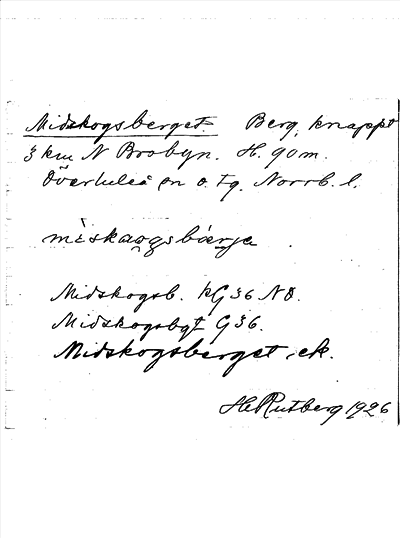 Midskogsberget. Berg, knappt
3 km N Brobyn. H. 90 m.
Överluleå sn o. tg. Norrb. l.
miskaogsbærje
Midskogsb. kG 36 NO.
Midskogsbgt G 36.
Midskogsberget, ek.
H Rutberg 1926